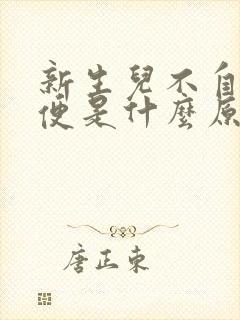 新生兒不自
便是什麼原
唐正東